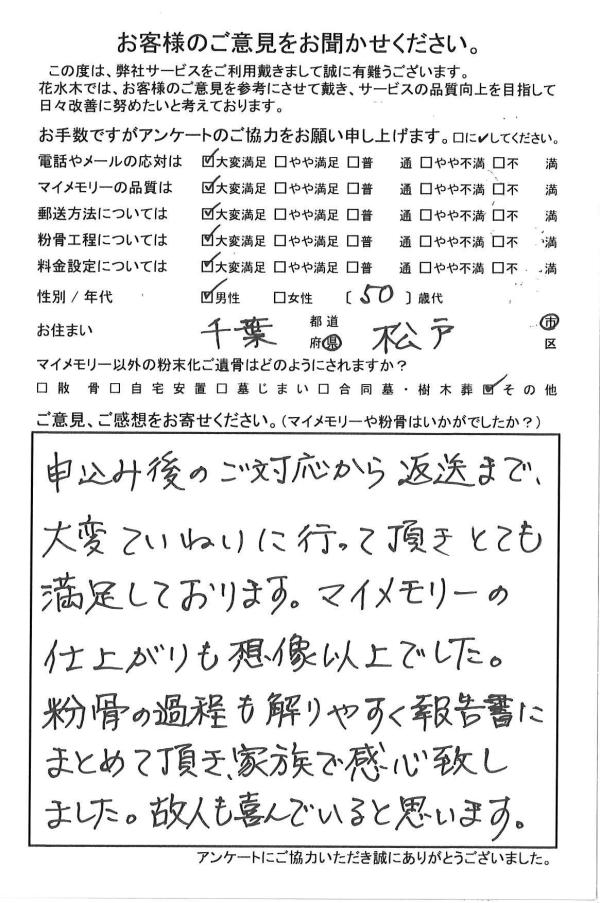 お客様のご意見をお聞かせください。
この度は、弊社サービスをご利用戴きまして誠に有難うございます。
花水木では、お客様のご意見を参考にさせて戴き、サービスの品質向上を目指して
日々改善に努めたいと考えております。
お手数ですがアンケートのご協力をお願い申し上げます。□に✔してください。
電話やメールの応対は ☑大変満足 □やや満足 □普 通 □やや不満 □不 満
マイメモリーの品質は ☑大変満足 □やや満足 □普 通 □やや不満 □不 満
郵送方法については ☑大変満足 □やや満足 □普 通 □やや不満 □不 満
粉骨工程については ☑大変満足 □やや満足 □普 通 □やや不満 □不 満
料金設定については ☑大変満足 □やや満足 □普 通 □やや不満 □不 満
性別 / 年代 ☑男性 □女性 〔 50 〕歳代
お住まい 千葉 都道府県 松戸 市区
マイメモリー以外の粉末化ご遺骨はどのようにされますか?
□散 骨 □自宅安置 □墓じまい □合同墓・樹木葬 ☑その他
ご意見、ご感想をお寄せください。(マイメモリーや粉骨はいかがでしたか?)
申込み後のご対応から返送まで、
大変ていねいに行って頂きとても
満足しております。マイメモリーの
仕上がりも想像以上でした。
粉骨の過程も解りやすく報告書に
まとめて頂き、家族で感心致し
ました。故人も喜んでいると思います。
アンケートにご協力いただき誠にありがとうございました。